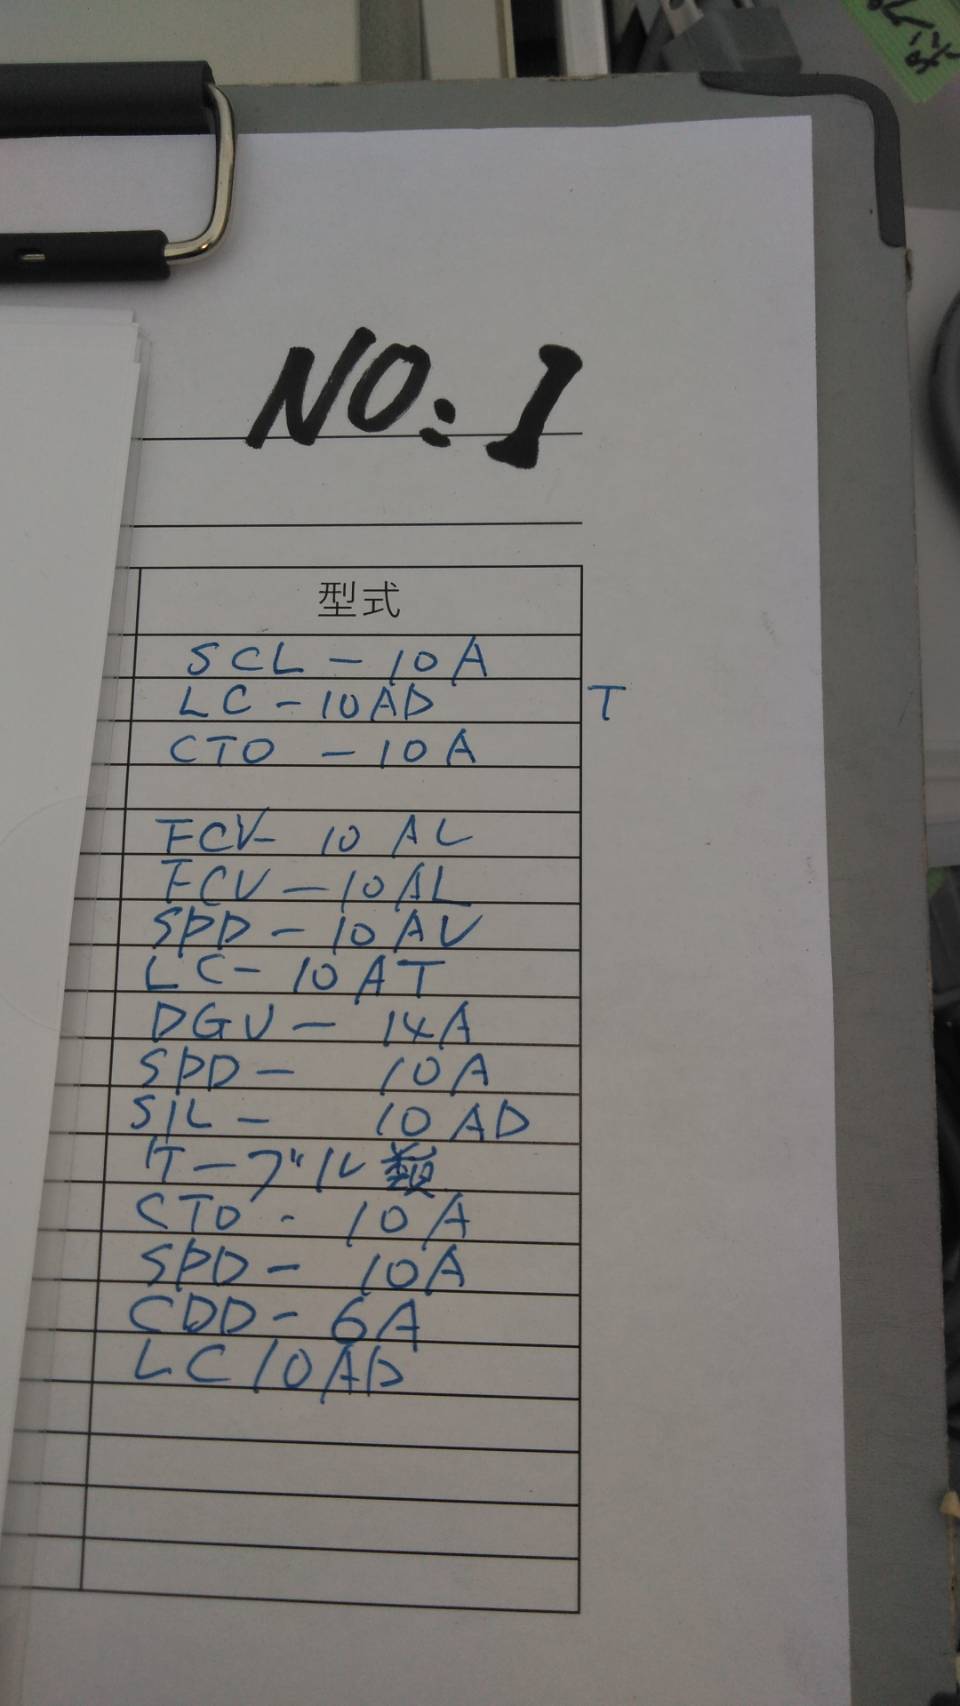 NO: 1
型式
SCL - 10A
LC - 10AD T
CTO - 10A
FCV- 10 AL
FCV - 10AL
SPD - 10 AV
LC- 10 AT
DGU - 14A
SPD - 10A
SIL - 10 AD
ケーブル類
CTO - 10A
SPD - 10A
CDD - 6A
LC 10AD